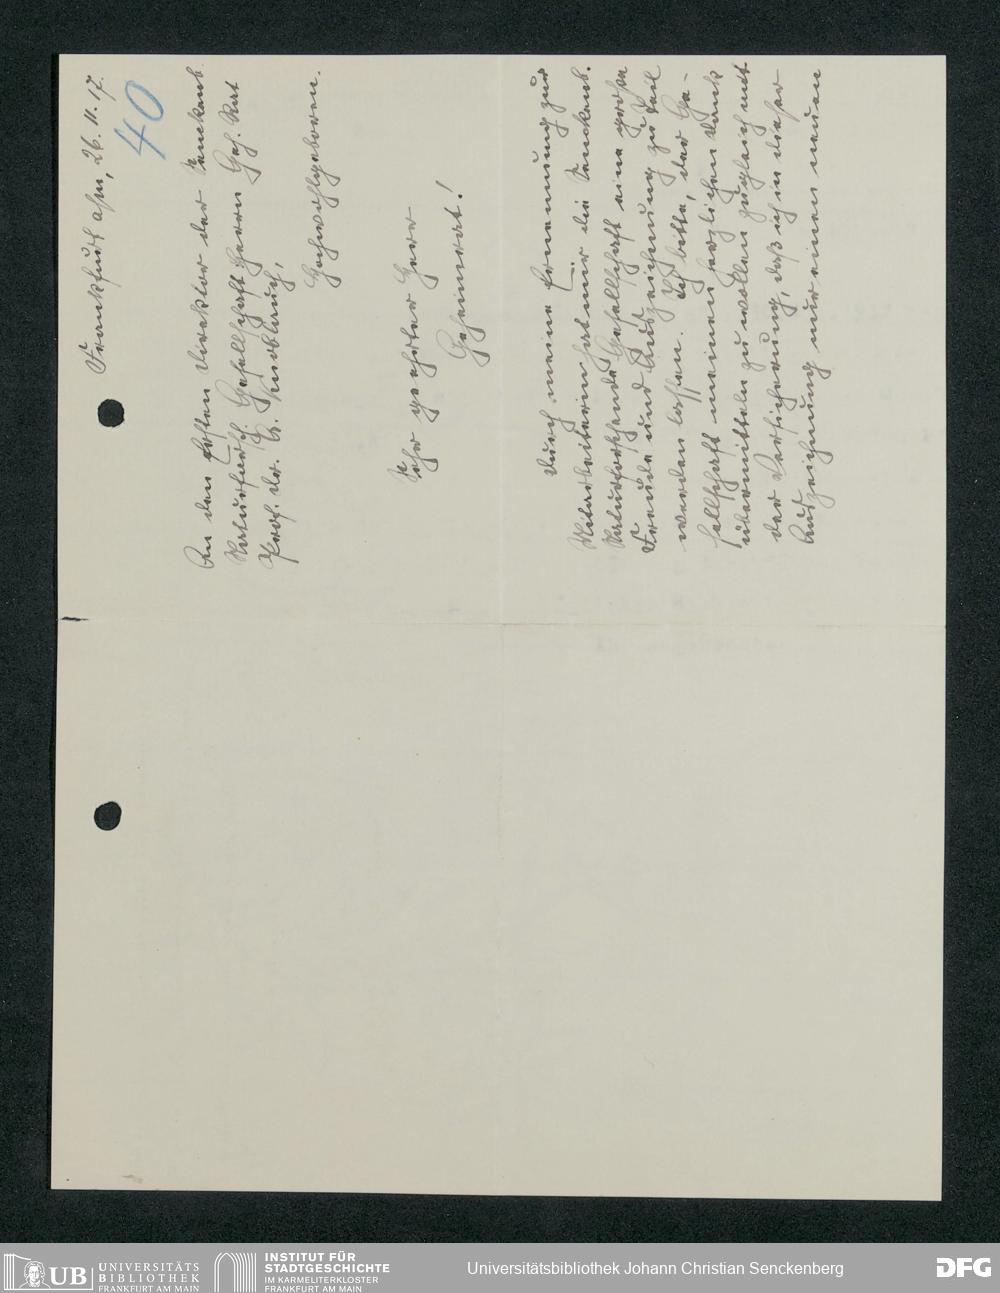 Frankfurt a/m, 26. 11. 17.
40
An den Ersten Direktor der Senckenb.
Naturforsch. Gesellschaft Herrn Geh. Rat
Prof. Dr. A. Knoblauch,
Hochwohlgeboren.
Sehr geehrter Herr
Geheimrat!
Durch meine Ernennung zur
Mitarbeiterin hat mir die Senckenb.
Naturforschende Gesellschaft eine große
Freude und Auszeichnung zu Teil
werden lassen. Ich bitte, der Ge-
sellschaft meinen herzlichen Dank
übermitteln zu wollen zugleich mit
der Versicherung, daß ich in dieser
Auszeichnung nur einen neuen
UB UNIVERSITÄTS
BIBLIOTHEK
FRANKFURT AM MAIN
INSTITUT FÜR
STADTGESCHICHTE
IM KARMELITERKLOSTER
FRANKFURT AM MAIN
Universitätsbibliothek Johann Christian Senckenberg
DFG